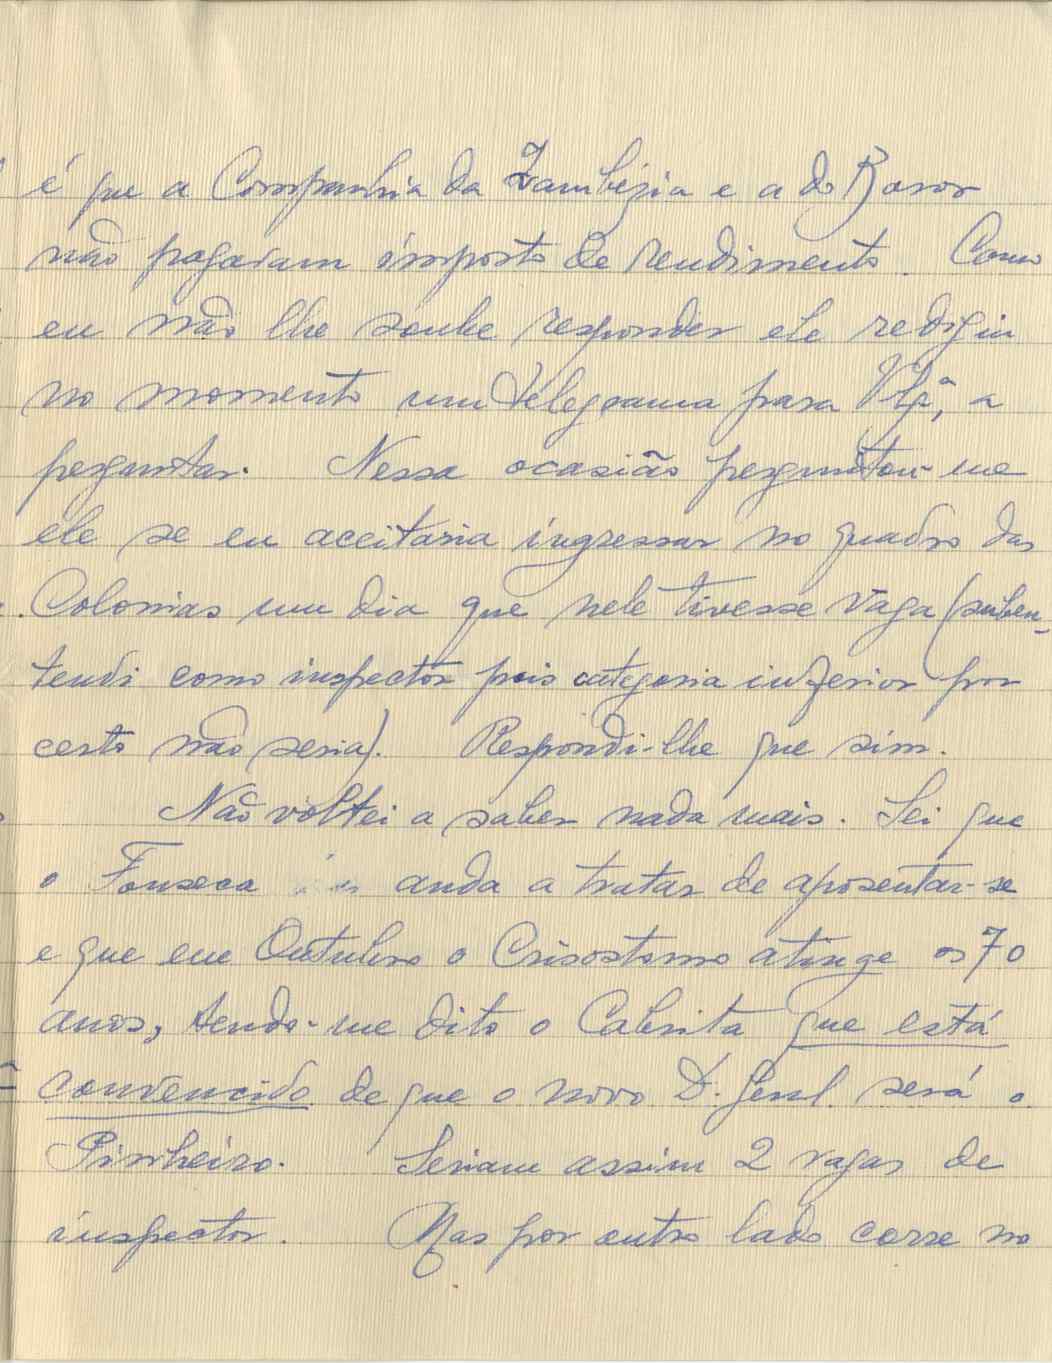 é que a Companhia da Zambézia e a do Boror
não pagaram imposto de rendimento. Como
eu não lhe soube responder ele redigiu
no momento um telegrama para a
perguntar. Nessa ocasião perguntou-me
ele se eu aceitaria ingressar no quadro das
Colonias um dia que nele tivesse vaga (suben-
tendi como inspector pois categoria inferior por
certo não seria). Respondi-lhe que sim.
Não voltei a saber nada mais. Sei que
o Fonseca anda a tratar de aposentar-se
e que em Outubro o Crisostomo atinge os 70
anos, tendo-me dito o Cabrita que está
convencido de que o novo D. Geral será o
Pinheiro. Seriam assim 2 vagas de
inspector. Mas por outro lado corre no